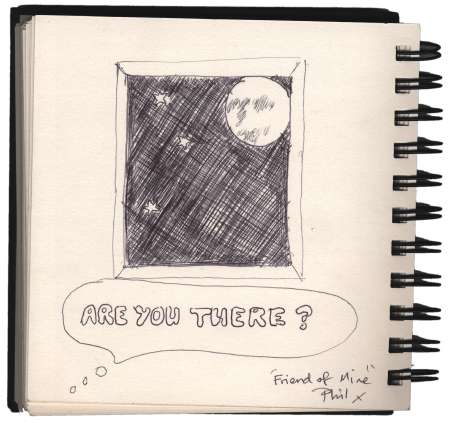 ARE YOU THERE?
'Friend of Mine"
Phil x